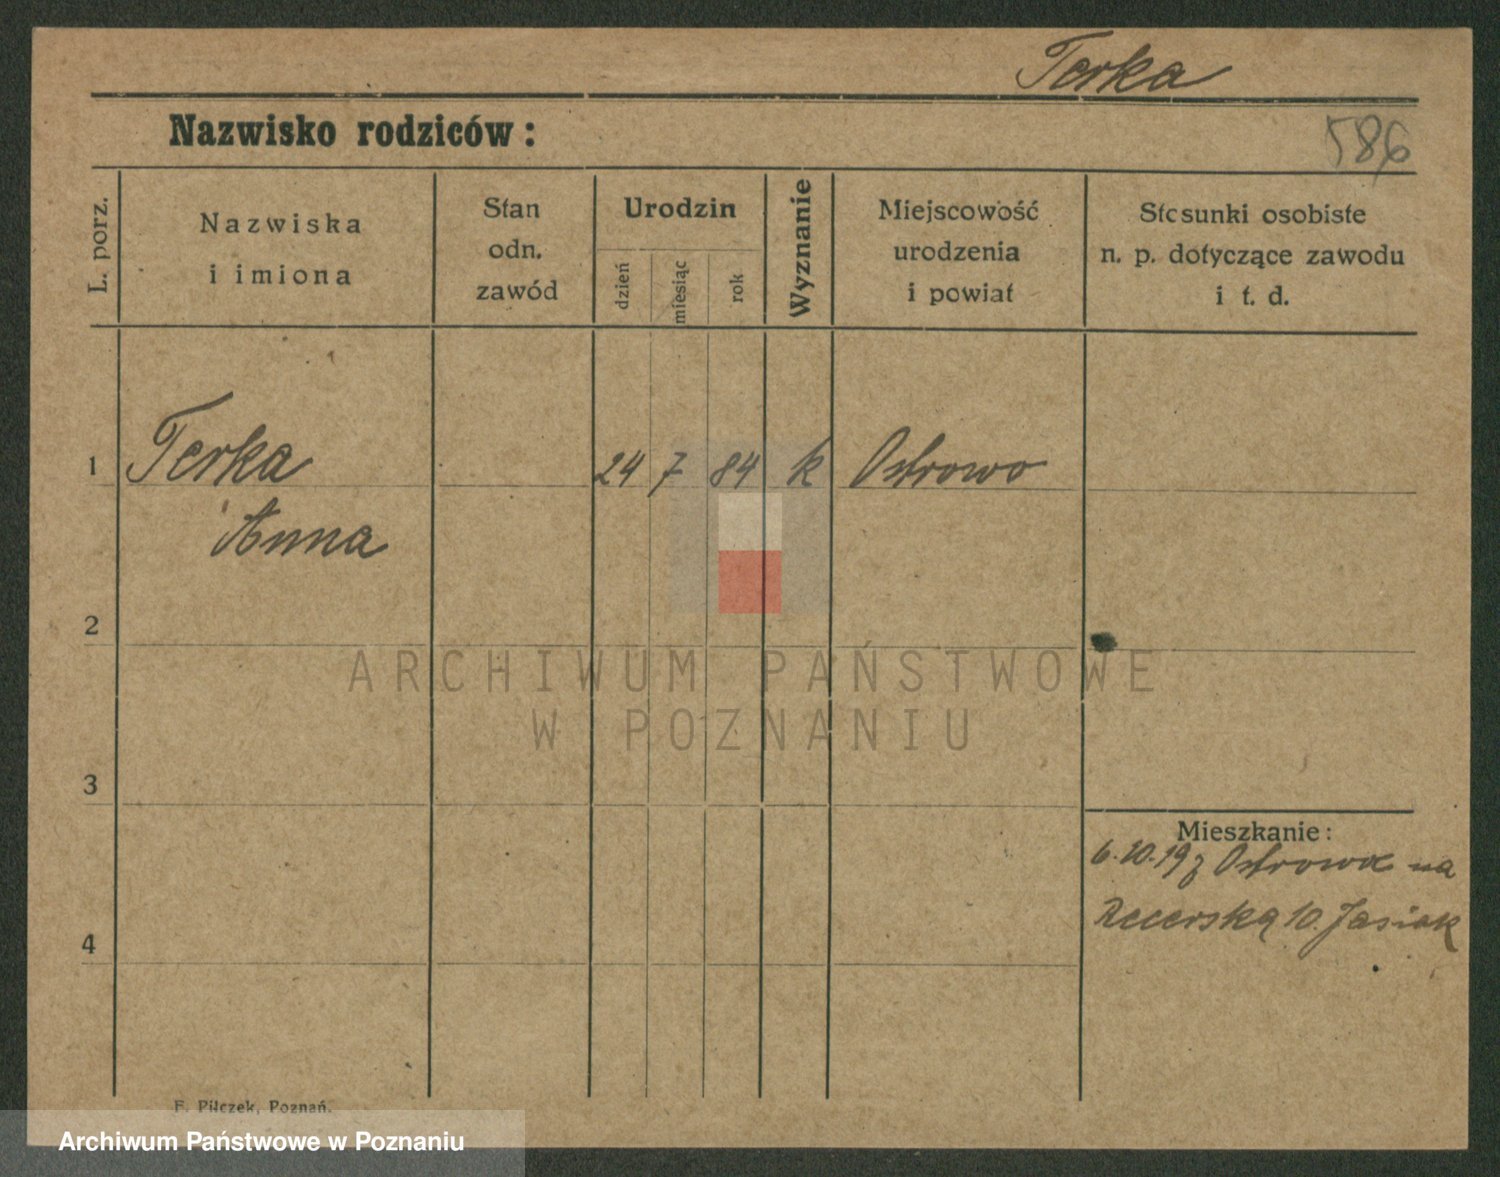 Terka
Nazwisko rodziców:
586
L. porz.
Nazwiska
i imiona
Stan
odn.
zawód
Urodzin
dzień
miesiąc
rok
Wyznanie
Miejscowość
urodzenia
i powiat
Stosunki osobiste
n. p. dotyczące zawodu
i t. d.
1
Terka
24 7 84 k Ostrowo
Anna
2
ARCHIWUM PAŃSTWOWE
W POZNANIU
3
Mieszkanie:
6.10.19 z Ostrowa na
10. Jasiak
4
F. Pilczek, Poznań.
Archiwum Państwowe w Poznaniu